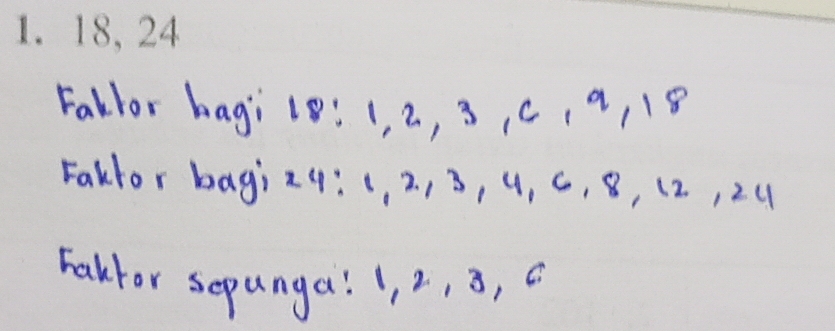 1. 18, 24
Faktor bagi 18: 1, 2, 3, 6, 9, 18
Faktor bagi 24: 1, 2, 3, 4, 6, 8, 12, 24
Faktor sepunya: 1, 2, 3, 6